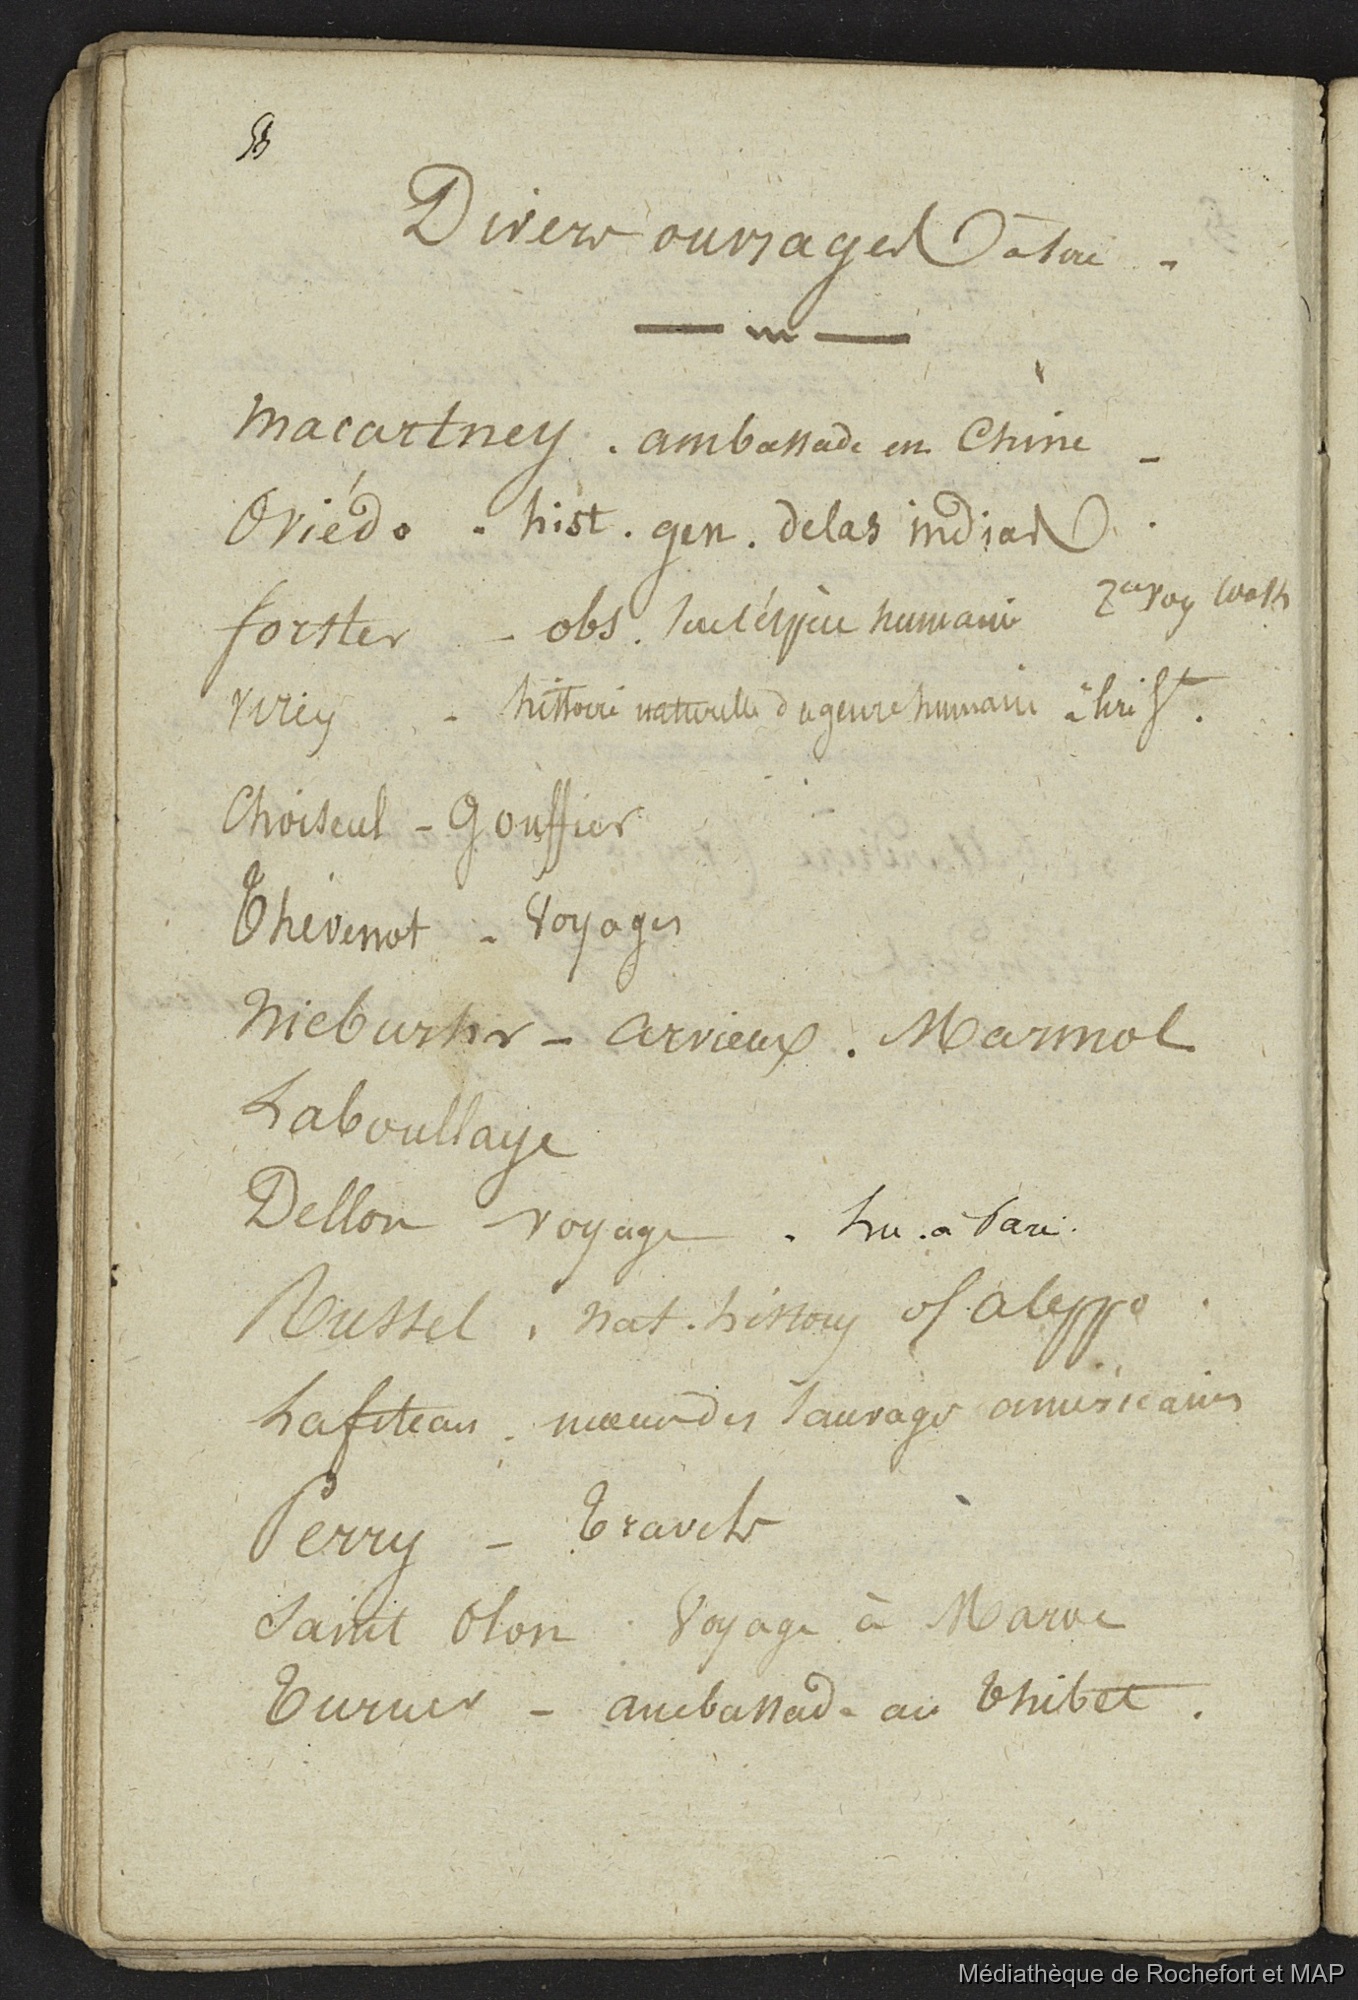 58
Divers ouvrages à lire -
Macartney . ambassade en Chine -
Oviédo - hist. gen. de las indias .
forster - obs. sur l'éspèce humaine 2e voy Cook
virey - histoire naturelle du genre humain à lire .
Choiseul - Gouffier
Thévenot - Voyages
Nieburhr - Arvieux . Marmol
Laboullaye
Dellon voyage . lu . à Paris.
Russel . nat . history of aleppo .
Lafiteau . moeurs des Sauvages américains
Perry - Travels
Saint Olon . Voyage à Maroc
Turner - ambassade au Thibet .
Médiathèque de Rochefort et MAP